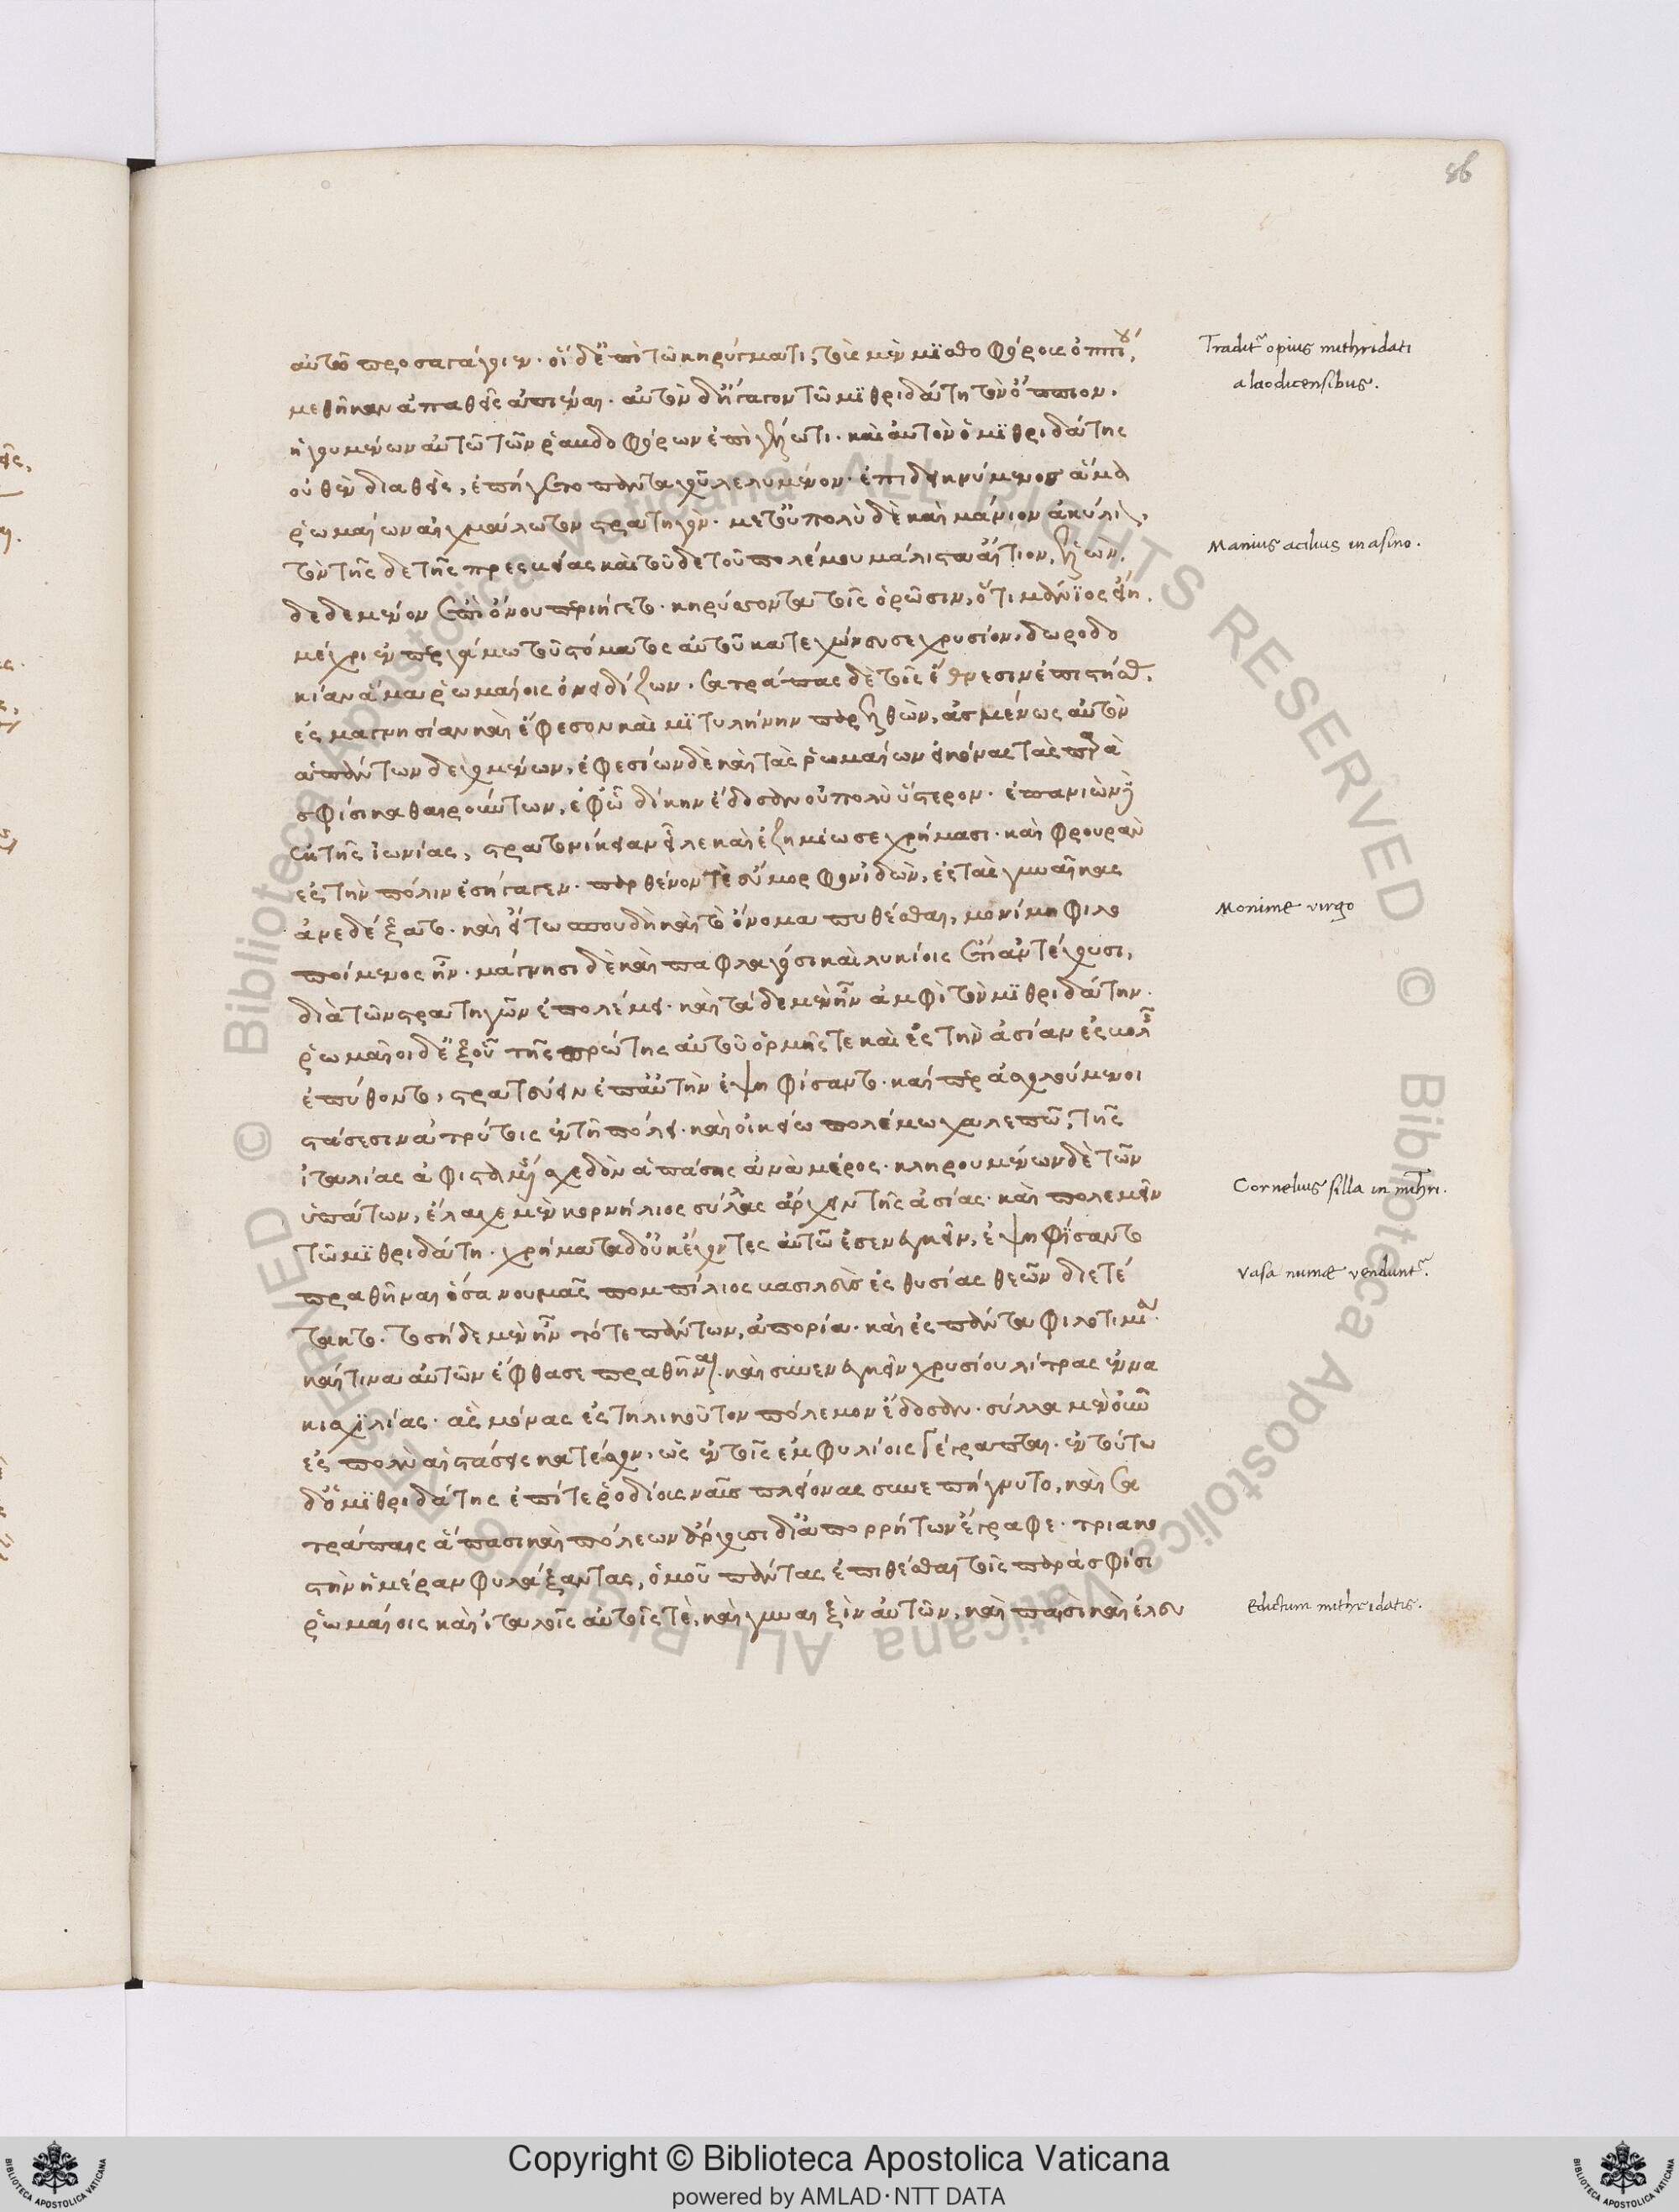 86
αὐτὸν προσαγάγοιεν. οἱ δ' ἐπὶ τῷ κηρύγματι, τοὺς μὲν μϊσθοφόρους ὀππίου,
μεθῆκαν ἀπαθεῖς ἀπιέναι. αὐτὸν δ' ἤγαγον τῷ μϊθριδάτῃ τὸν ὄππιον.
ἡγουμένων αὐτῷ τῶν ῥαβδοφόρων ἐπὶ γέλωτι. καὶ αὐτὸν ὁ μϊθριδάτης
οὐθὲν διαθεὶς, ἐπήγετο πανταχοῦ λελυμένον. ἐπιδεικνύμενος ἅμα
ῥωμαίων αἰχμάλωτον στρατηγόν. μετ' οὐ πολὺ δὲ καὶ μάνιον ἀκύλιον,
τὸν τῆς δε τῆς πρεσβείας καὶ τοῦδε τοῦ πολέμου μάλιστα αἴτιον, ἑλὼν.
δεδεμένον ἐπὶ ὄνου περιήγετο. κηρύσσοντα τοῖς ὁρῶσιν, ὅτι μάνϊος εἴη.
μέχρι ἐν περγάμῳ τοῦ στόματος αὐτοῦ κατεχώνευσε χρυσίον, δωροδο
κίαν ἄμα ῥωμαίοις ὀνειδίζων. σατράπας δὲ τοῖς ἔθνεσιν ἐπιστήσας.
ἐς μαγνησίαν καὶ ἔφεσον καὶ μϊτυλήνην παρῆλθεν, ἀσμένως αὐτὸν
ἁπάντων δεχομένων, ἐφεσίων δὲ καὶ τὰς ῥωμαίων εἰκόνας τὰς παρὰ
σφίσι καθαιρούντων, ἐφ' ᾧ δίκην ἔδοσαν οὐ πολὺ ὕστερον. ἐπανιὼν δ'
ἐκ τῆς ἰωνίας, στρατονίκειαν εἷλε καὶ ἐζημίωσε χρήμασι. καὶ φρουρὰν
ἐς τὴν πόλιν ἐσήγαγεν. παρθένον τὲ εὔμορφον ἰδὼν, ἐς τὰς γυναῖκας
ἀνεδέξατο. καὶ εἴ τῳ σπουδὴ καὶ τὸ ὄνομα πυθέσθαι, μονίμη φιλο
ποίμενος ἦν. μάγνησι δὲ καὶ παφλαγόσι καὶ λυκίοις ἔτι ἀντέχουσι,
διὰ τῶν στρατηγῶν ἐπολέμει. καὶ τάδε μὲν ἦν ἀμφὶ τὸν μϊθριδάτην.
ῥωμαῖοι δ' ἐξ οὗ τῆς πρώτης αὐτοῦ ὁρμῆς τε καὶ ἐς τὴν ἀσίαν ἐσβολῆς
ἐπύθοντο, στρατεύειν ἐπ' αὐτὴν ἐψηφίσαντο. καί περ ἀσχολούμενοι
στάσεσιν ἀτρύτοις ἐν τῇ πόλει. καὶ οἰκείῳ πολέμῳ χαλεπῷ, τῆς
ἰταλίας ἀφισταμένης σχεδὸν ἁπάσης ἀνὰ μέρος. κληρουμένων δὲ τῶν
ὑπάτων, ἔλαχε μὲν κορνήλιος σύλλας ἄρχειν τῆς ἀσίας. καὶ πολεμεῖν
τῷ μϊθριδάτῃ. χρήματα δ' οὐκ ἔχοντες αὐτῷ ἐσενεγκεῖν, ἐψηφίσαντο
πραθῆναι ὅσα νουμᾶς πομπίλιος βασιλεὺς ἐς θυσίας θεῶν διετέ
τακτο. τοσήδε μὲν ἦν τότε πάντων, ἀπορία. καὶ ἐς πάντα φιλοτιμία.
καί τινα αὐτῶν ἔφθασε πραθῆναι. καὶ συνενεγκεῖν χρυσίου λίτρας ἐννα
κισχϊλίας. ἃς μόνας ἐς τηλικοῦτον πόλεμον ἔδοσαν. σύλλα μὲν οὖν
ἐς πολὺ αἱ στάσεις κατέσχον, ὡς ἐν τοῖς ἐμφυλίοις γέγραπται. ἐν τούτῳ
δ' ὁ μϊθριδάτης ἐπί τε ῥοδίοις ναῦς πλείονας συνεπήγνυτο, καὶ σα
τράπαις ἅπασι καὶ πόλεων ἄρχουσι δι' ἀπορρήτων ἔγραφε. τριακο
στὴν ἡμέραν φυλάξαντας, ὁμοῦ πάντας ἐπιθέσθαι τοῖς παρὰ σφίσι
ῥωμαίοις καὶ ἰταλοῖς αὐτοῖς τὲ, καὶ γυναιξὶν αὐτῶν, καὶ παισὶ καὶ ἐλευ
Tradit~ opius mithridati
a laodicensibus.
Manius acilius in asino.
Monime virgo
Cornelius silla in mthri.
Vasa nume vendunt~.
Edictum mithridatis.
Copyright © Biblioteca Apostolica Vaticana
powered by AMLAD·NTT DATA
© Biblioteca Apostolica Vaticana ALL RIGHTS RESERVED © Biblioteca Apostolica Vaticana ALL RIGHTS RESERVED
BIBLIOTECA APOSTOLICA VATICANA
BIBLIOTECA APOSTOLICA VATICANA